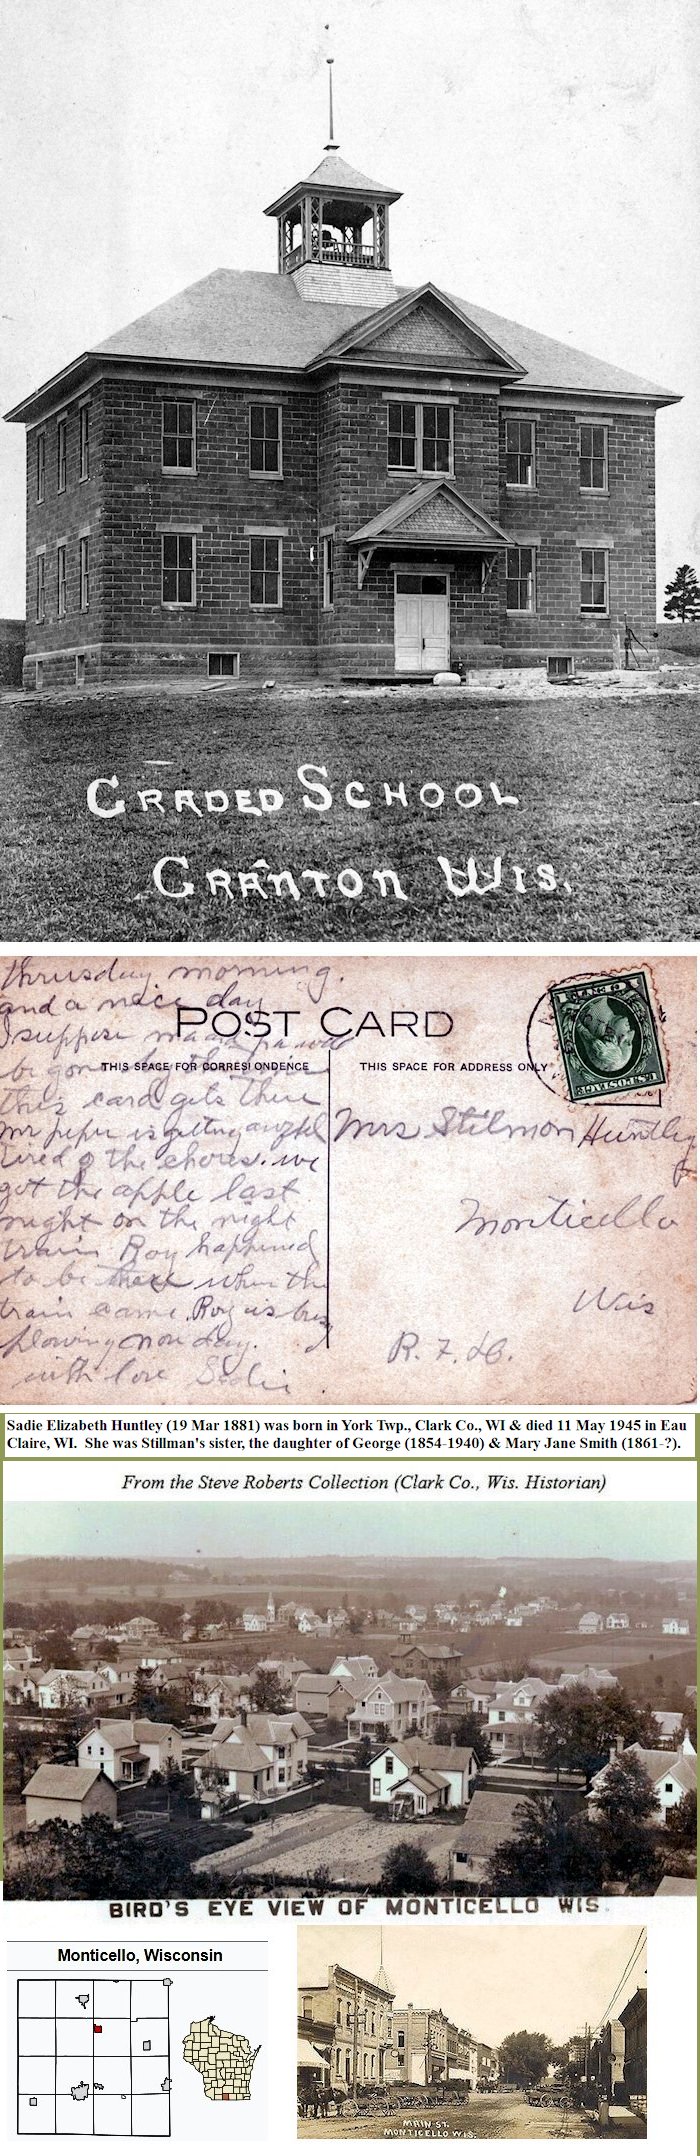 GRADED SCHOOL
GRANTON WIS.
Thrusday morning.
and a nice day
I suppose ma and pa will
be gone by the time
this card gets there
mr pifer is getting awful
tired of the chores. we
got the apple last
night on the night
train Roy happened
to be there when the
train came. Roy is busy
plowing now day.
with love Sadie
POST CARD
THIS SPACE FOR CORRESPONDENCE
THIS SPACE FOR ADDRESS ONLY
U.S. POSTAGE
Mrs Stilmon Huntley
Monticello
Wis
R. F. D.
Sadie Elizabeth Huntley (19 Mar 1881) was born in York Twp., Clark Co., WI & died 11 May 1945 in Eau
Claire, WI.  She was Stillman's sister, the daughter of George (1854-1940) & Mary Jane Smith (1861-?).
From the Steve Roberts Collection (Clark Co., Wis. Historian)
BIRD'S EYE VIEW OF MONTICELLO WIS.
Monticello, Wisconsin
MAIN ST.
MONTICELLO WIS.